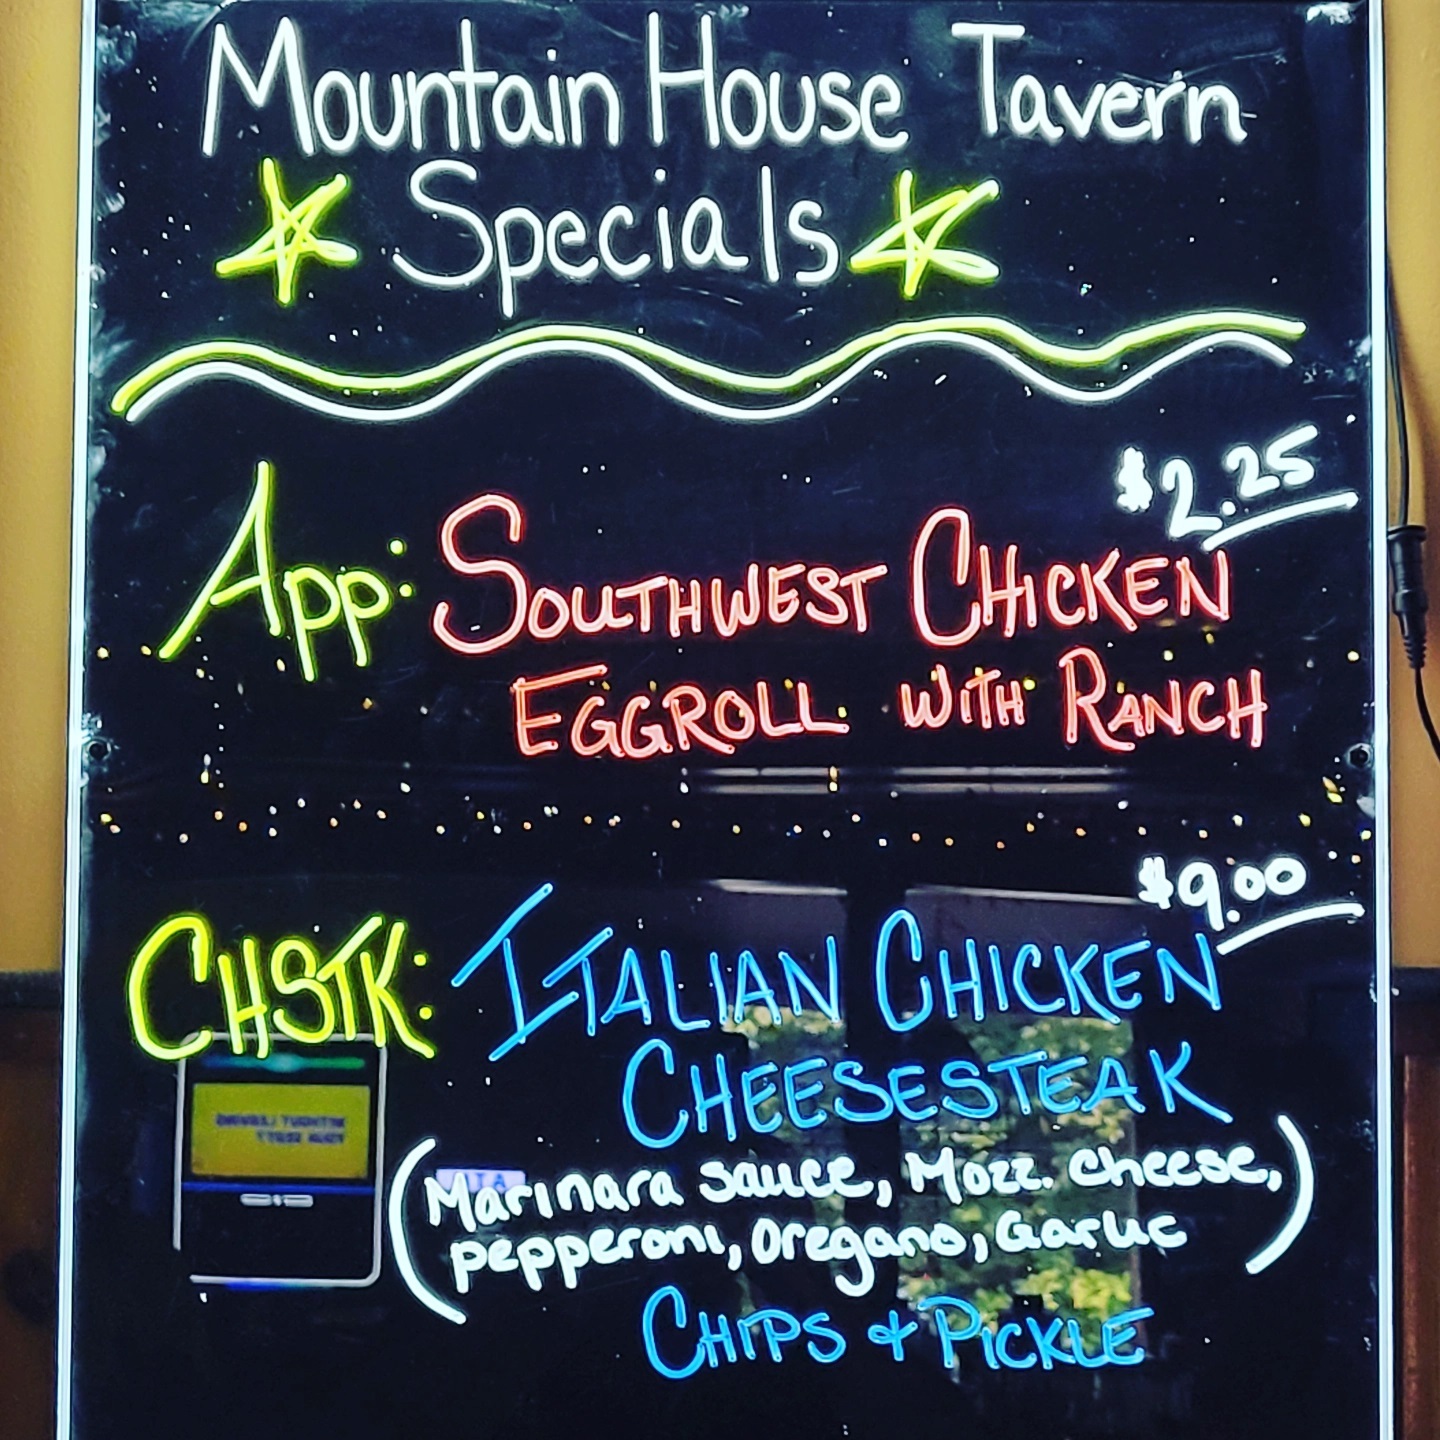 Mountain House Tavern
Specials
$2.25
App: Southwest Chicken
Eggroll with Ranch
$9.00
CHSTK: Italian Chicken
Cheesesteak
(Marinara sauce, Mozz. cheese,
pepperoni, Oregano, Garlic)
Chips & Pickle